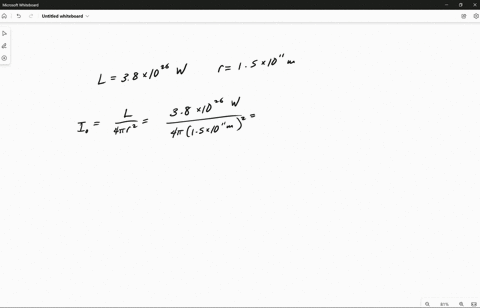 Microsoft Whiteboard
Untitled whiteboard
L = 3.8 × 10²⁶ W    r = 1.5 × 10¹¹ m
I₀ = L / 4πr² = 3.8 × 10²⁶ W / 4π(1.5 × 10¹¹ m)² =
81%